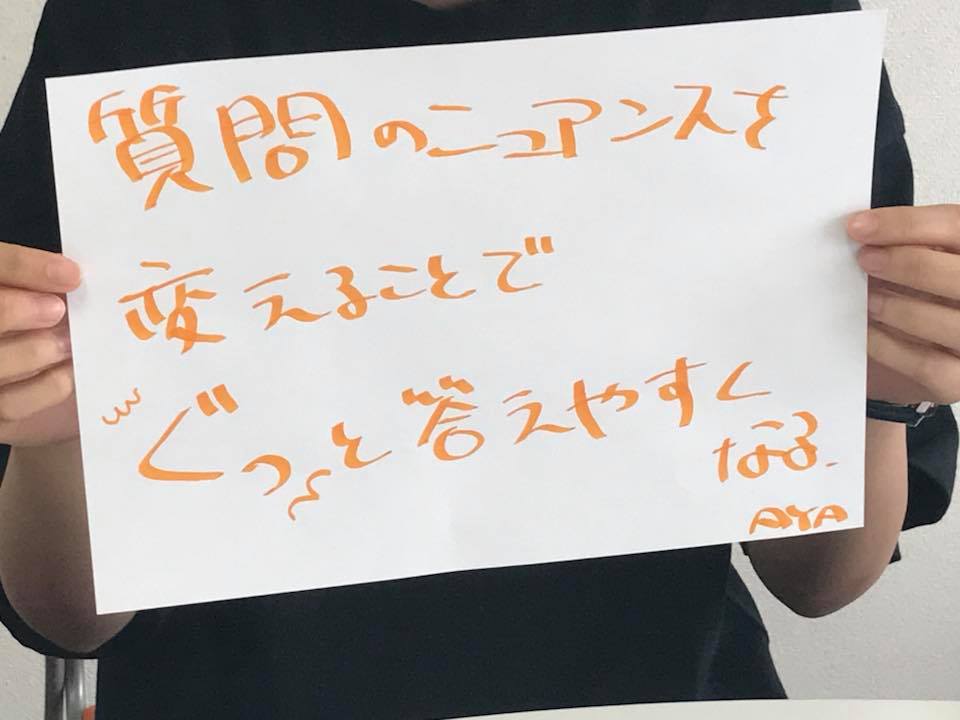 質問のニュアンスを
変えることで
ぐっと答えやすく
なる.
AYA